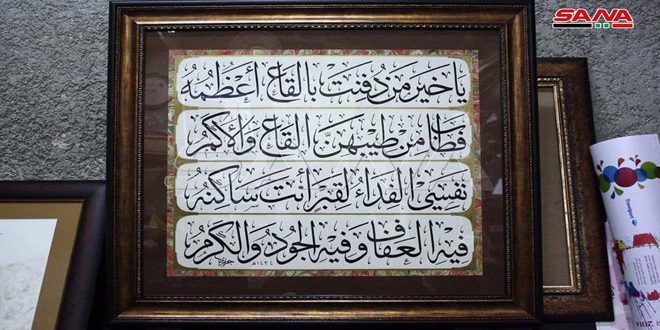 SANA
يَا خَيْرَ مَنْ دُفِنَتْ بِالْقَاعِ أَعْظُمُهُ
فَطَابَ مِنْ طِيبِهِنَّ الْقَاعُ وَالْأَكَمُ
نَفْسِي الْفِدَاءُ لِقَبْرٍ أَنْتَ سَاكِنُهُ
فِيهِ الْعَفَافُ وَفِيهِ الْجُودُ وَالْكَرَمُ